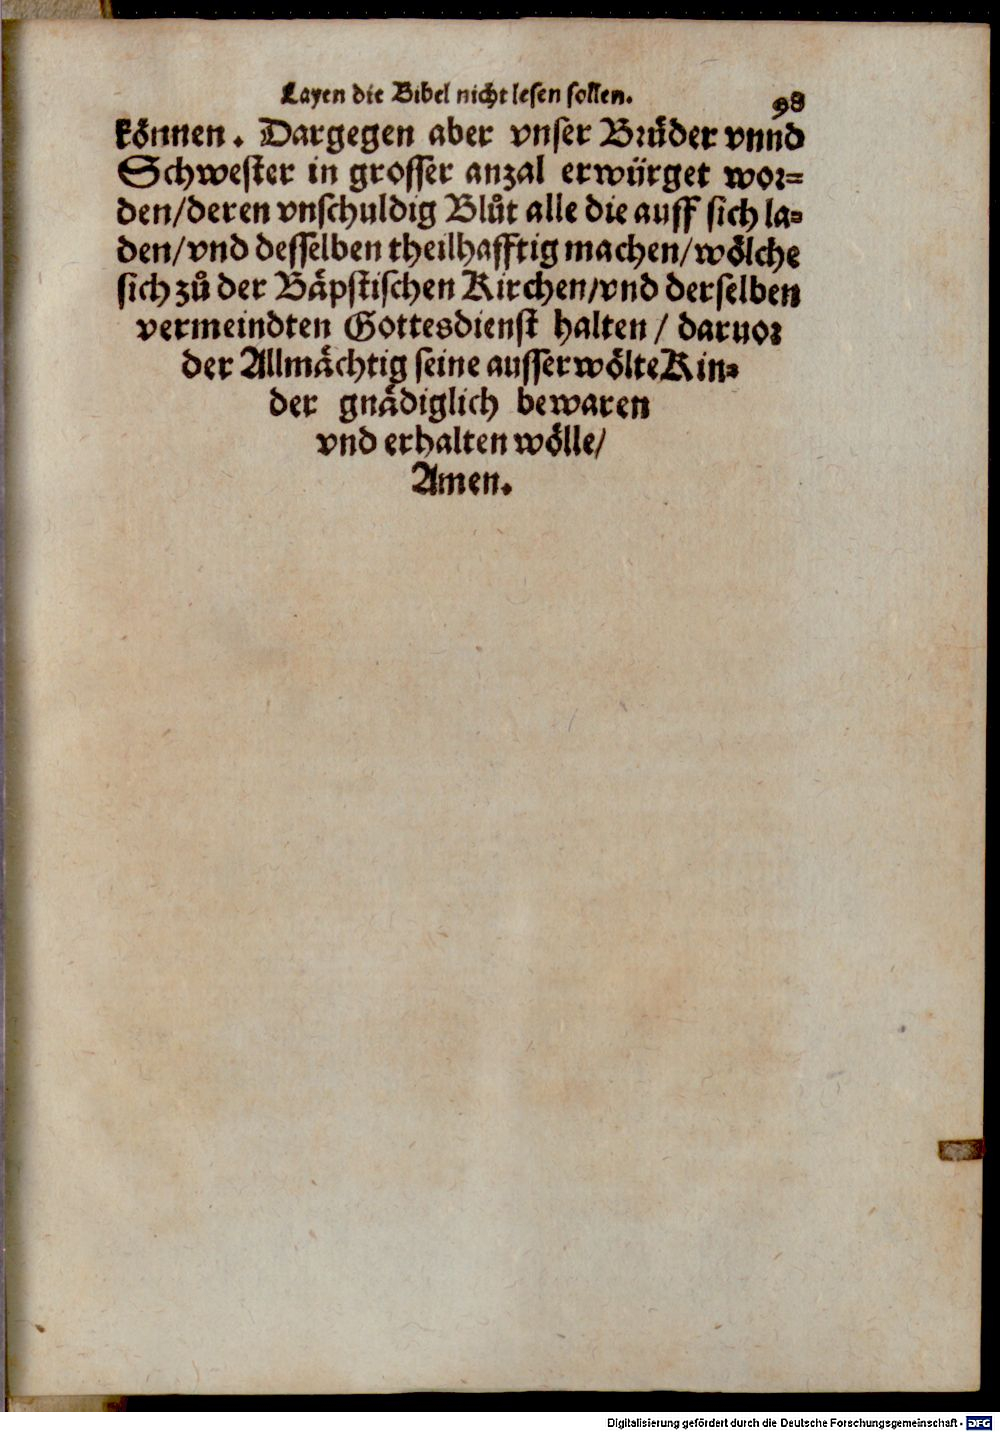 Layen die Bibel nicht lesen sollen.
98
können. Dargegen aber vnser Bruͤder vnnd
Schwester in grosser anzal erwürget wor-
den/deren vnschuldig Bluͦt alle die auff sich la-
den/vnd desselben theilhafftig machen/woͤlche
sich zuͦ der Baͤpstischen Kirchen/vnd derselben
vermeindten Gottesdienst halten / daruor
der Allmaͤchtig seine ausserwoͤlte Kin-
der gnaͤdiglich bewaren
vnd erhalten woͤlle/
Amen.
Digitalisierung gefördert durch die Deutsche Forschungsgemeinschaft - DFG